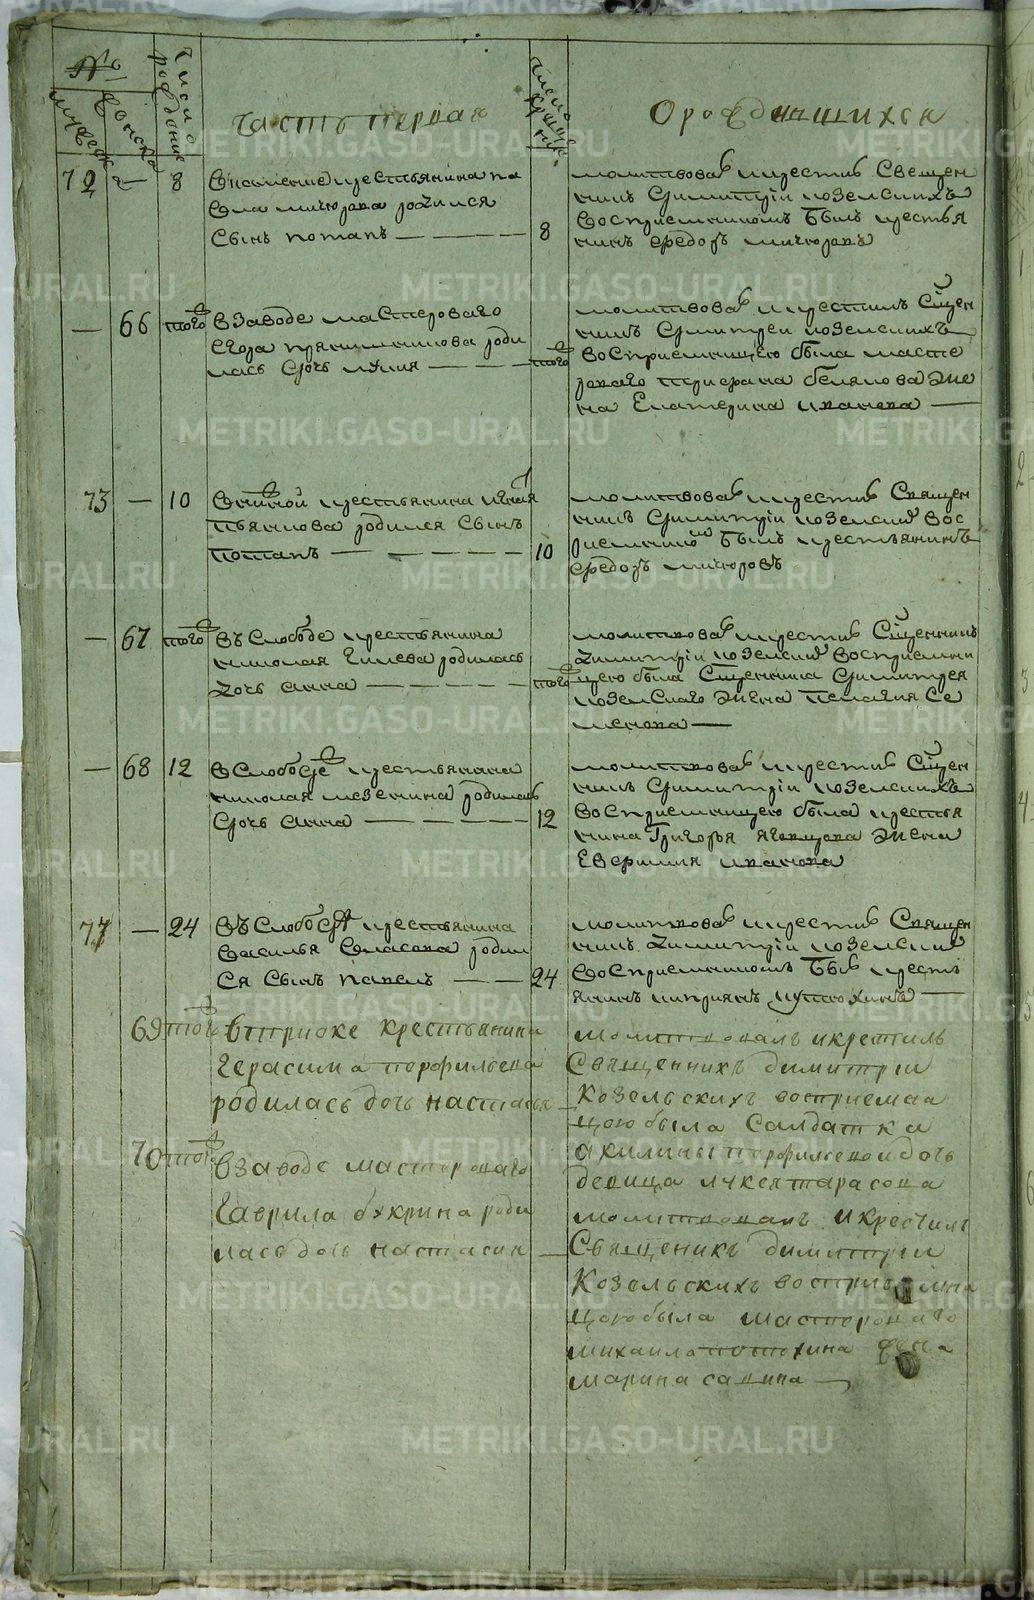 №
мужеска
женска
число рождения
Часть первая
число крещения
О родившихся
72 — 8
крестьянина
родился
сынъ потапъ
8
молитвовал и крестил Священ
никъ Димитрій козельскихъ
восприемникомъ былъ крестья
нинъ федоръ мичюровъ
— 66 того
в заводе мастероваго
Егора родилась
дочь
того
молитвовал и крестилъ Священ
никъ Димитреи козельскихъ
восприемницею была масте
роваго жена
Екатерина иванова
73 — 10
крестьянина
родился сынъ
потапъ
10
молитвовал и крестил Священ
никъ Димитріи козельский вос
приемникомъ былъ крестьянинъ
федоръ мичюровъ
— 67 того
въ Слободе крестьянина
николая Гилева родилась
дочь анна
того
молитвовал и крестил Священникъ
Димитріи козельский восприемни
цею была Священника Димитрея
козельского жена пелагия се
менова
— 68 12
в Слободе крестьянина
николая мезенина родилась
дочь анна
12
молитвовал и крестил Священ
никъ Димитріи козельскихъ
восприемницею была крестья
нина Григорья жена
иванова
77 — 24
въ Слободе крестьянина
василья власова родил
ся сынъ павелъ
24
молитвовал и крестил Священ
никъ Димитріи козельский
восприемникомъ был кресть
янинъ киприянъ
69 того
крестьянина
Герасима порфильева
родилась дочь настасья
молитвовалъ и крестилъ
Священникъ димитрии
козельскихъ восприемни
цою была Салдатка
акилины порфильевои дочь
девица лукея тарасова
70 того
в заводе мастероваго
Гаврила букрина роди
лась дочь настасия
молитвовалъ и крестилъ
Священикъ димитрии
козельскихъ восприемни
цою была мастероваго
михаила потохина жена
марина савина
METRIKI.GASO-URAL.RU